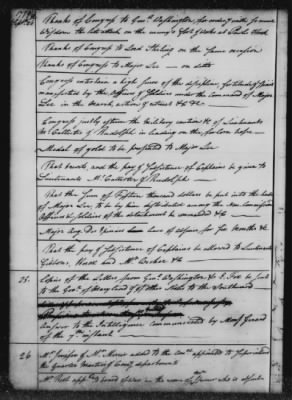 Thanks of Congress to Genl. Washington, for ordering with so much
Wisdom the late attack on the enemy's Fort & Works at Powles Hook
Thanks of Congress to Lord Stirling on the same occasion
Thanks of Congress to Major Lee — on ditto
Congress entertain a high sense of the discipline, fortitude & spirit
manifested by the Officers & Soldiers under the command of Major
Lee in the March, action & retreat &c &c
Congress justly esteem the military caution &c of Lieutenants
McCallister & Rudolph in leading on the forlorn hope —
Medal of gold to be presented to Major Lee
That brevets, and the pay & subsistence of Captains be given to
Lieutenants McCallister & Rudolph —
That the Sum of Fifteen thousand dollars be put into the hands
of Major Lee, to be by him distributed among the non Commission
Officers & Soldiers of the detachment he commanded &c —
Major leave of absence for Six Months &c
That the pay & Subsistence of Captains be allowed to Lieutenants
and
25. Copies of the Letters from Genl. Washington to be sent
to the Govr. of Maryland & other States to the Southward
answer to the Intelligence communicated by Monsr. Gerard
of the 7th instant
26 Mr. & Mr. added to the Comee. appointed to Superintend
the Quarter Masters & Comy. departments
Mr. appd. to board of in the room of who is absent